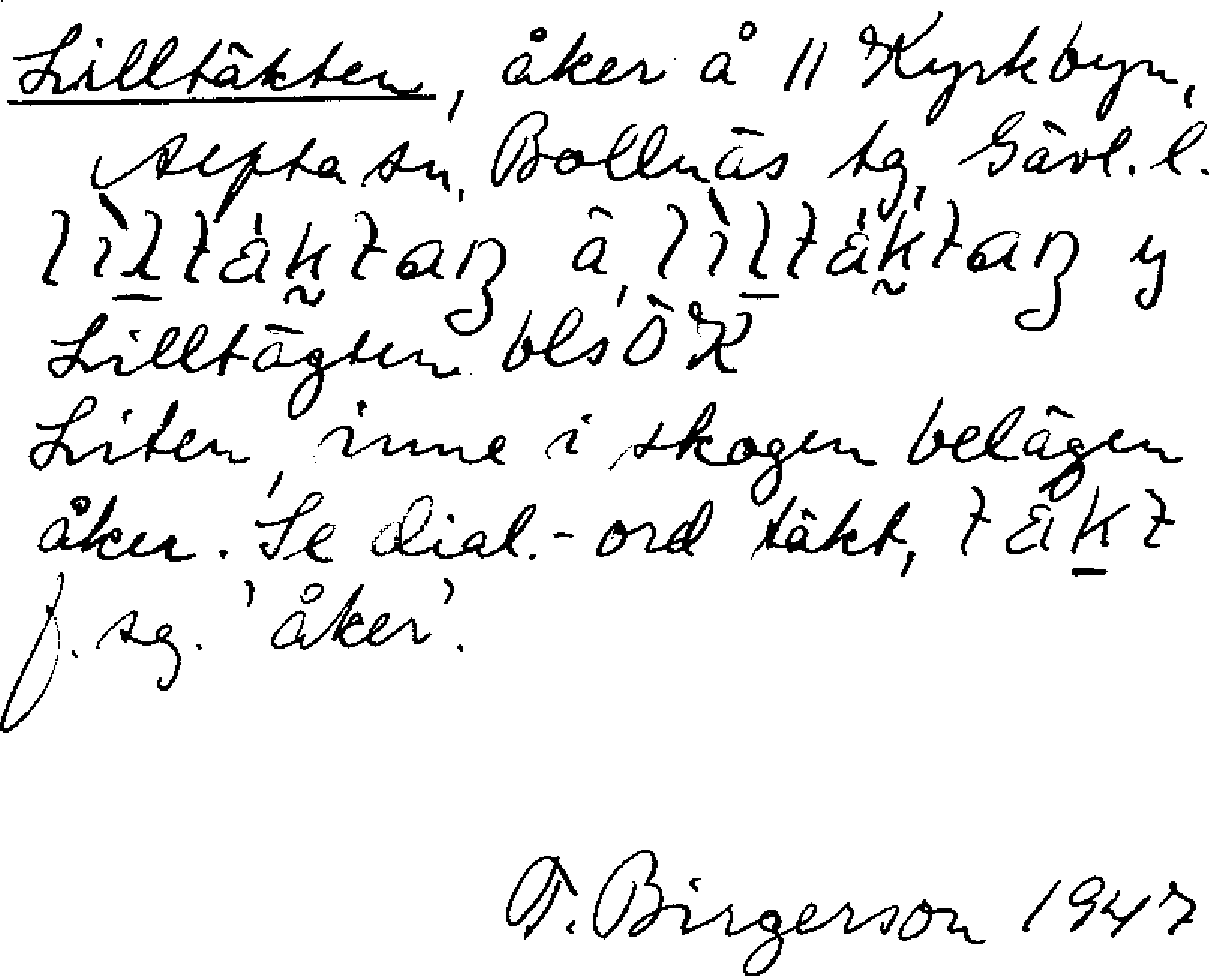 Lilltäkten, åker å 11 Kyrkbyn,
Segersta sn, Bollnäs tg, Gävl. l.
lìltäktaŋ ä, lìltäktaŋ y
Lilltägten bls ÖK
Liten, inne i skogen belägen
åker. Se dial.-ord täkt, täkt
f. sg. 'åker'.
T. Birgerson 1947